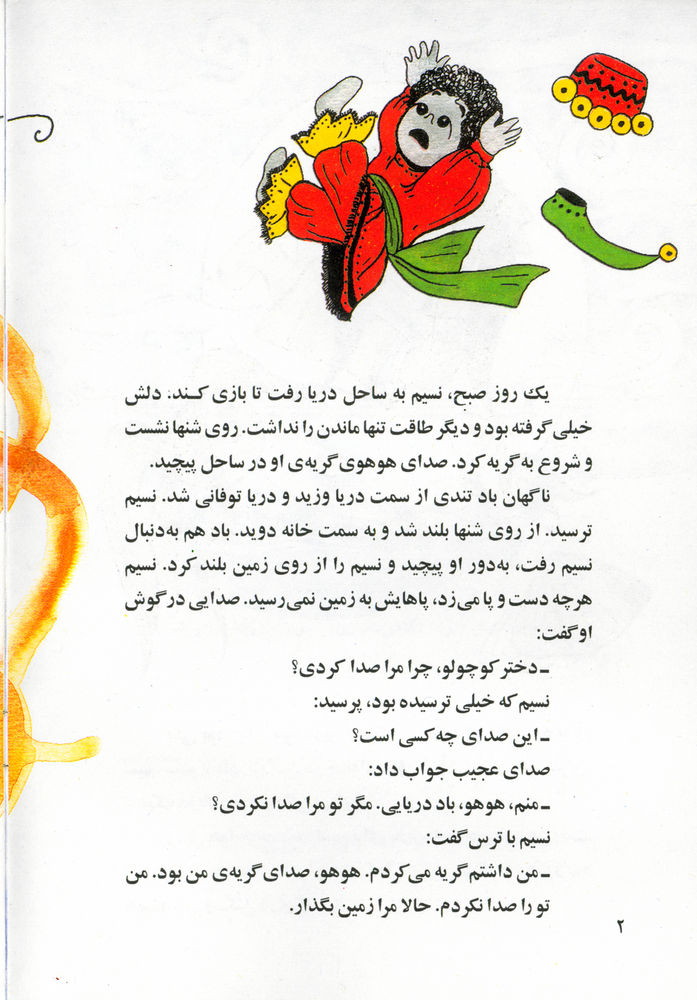 یک روز صبح، نسیم به ساحل دریا رفت تا بازی کند. دلش
خیلی گرفته بود و دیگر طاقت تنها ماندن را نداشت. روی شنها نشست
و شروع به گریه کرد. صدای هوهوی گریه‌ی او در ساحل پیچید.
ناگهان باد تندی از سمت دریا وزید و دریا توفانی شد. نسیم
ترسید. از روی شنها بلند شد و به سمت خانه دوید. باد هم به‌دنبال
نسیم رفت، به‌دور او پیچید و نسیم را از روی زمین بلند کرد. نسیم
هرچه دست و پا می‌زد، پاهایش به زمین نمی‌رسید. صدایی در گوش
او گفت:
ـ دختر کوچولو، چرا مرا صدا کردی؟
نسیم که خیلی ترسیده بود، پرسید:
ـ این صدای چه کسی است؟
صدای عجیب جواب داد:
ـ منم، هوهو، باد دریایی. مگر تو مرا صدا نکردی؟
نسیم با ترس گفت:
ـ من داشتم گریه می‌کردم. هوهو، صدای گریه‌ی من بود. من
تو را صدا نکردم. حالا مرا زمین بگذار.
۲